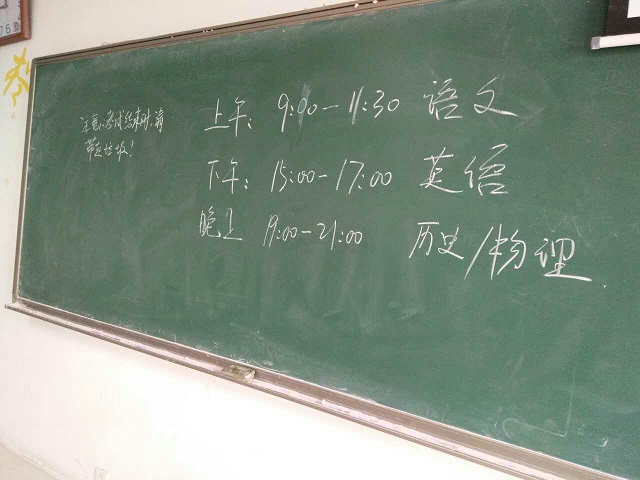 注意：考试结束时，请
带走垃圾！
上午：9:00-11:30 语文
下午：15:00-17:00 英语
晚上 19:00-21:00 历史/物理